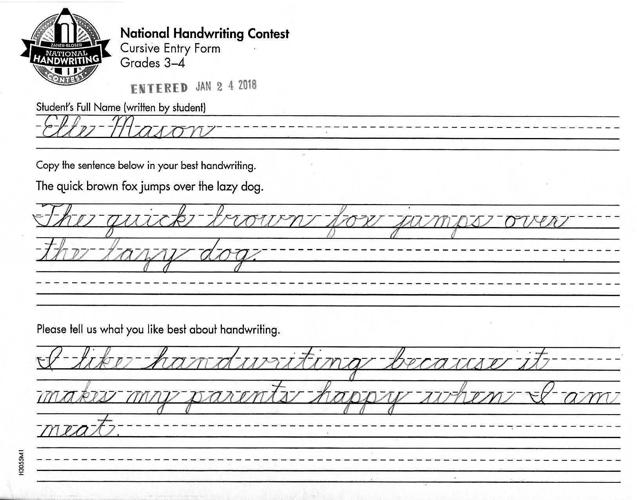 ZANER-BLOSER
NATIONAL
HANDWRITING
CONTEST
National Handwriting Contest
Cursive Entry Form
Grades 3–4
ENTERED JAN 24 2018
Student's Full Name (written by student)
Elle Mason
Copy the sentence below in your best handwriting.
The quick brown fox jumps over the lazy dog.
The quick brown fox jumps over
the lazy dog.
Please tell us what you like best about handwriting.
I like handwriting because it
makes my parents happy when I am
neat.
H0055M1